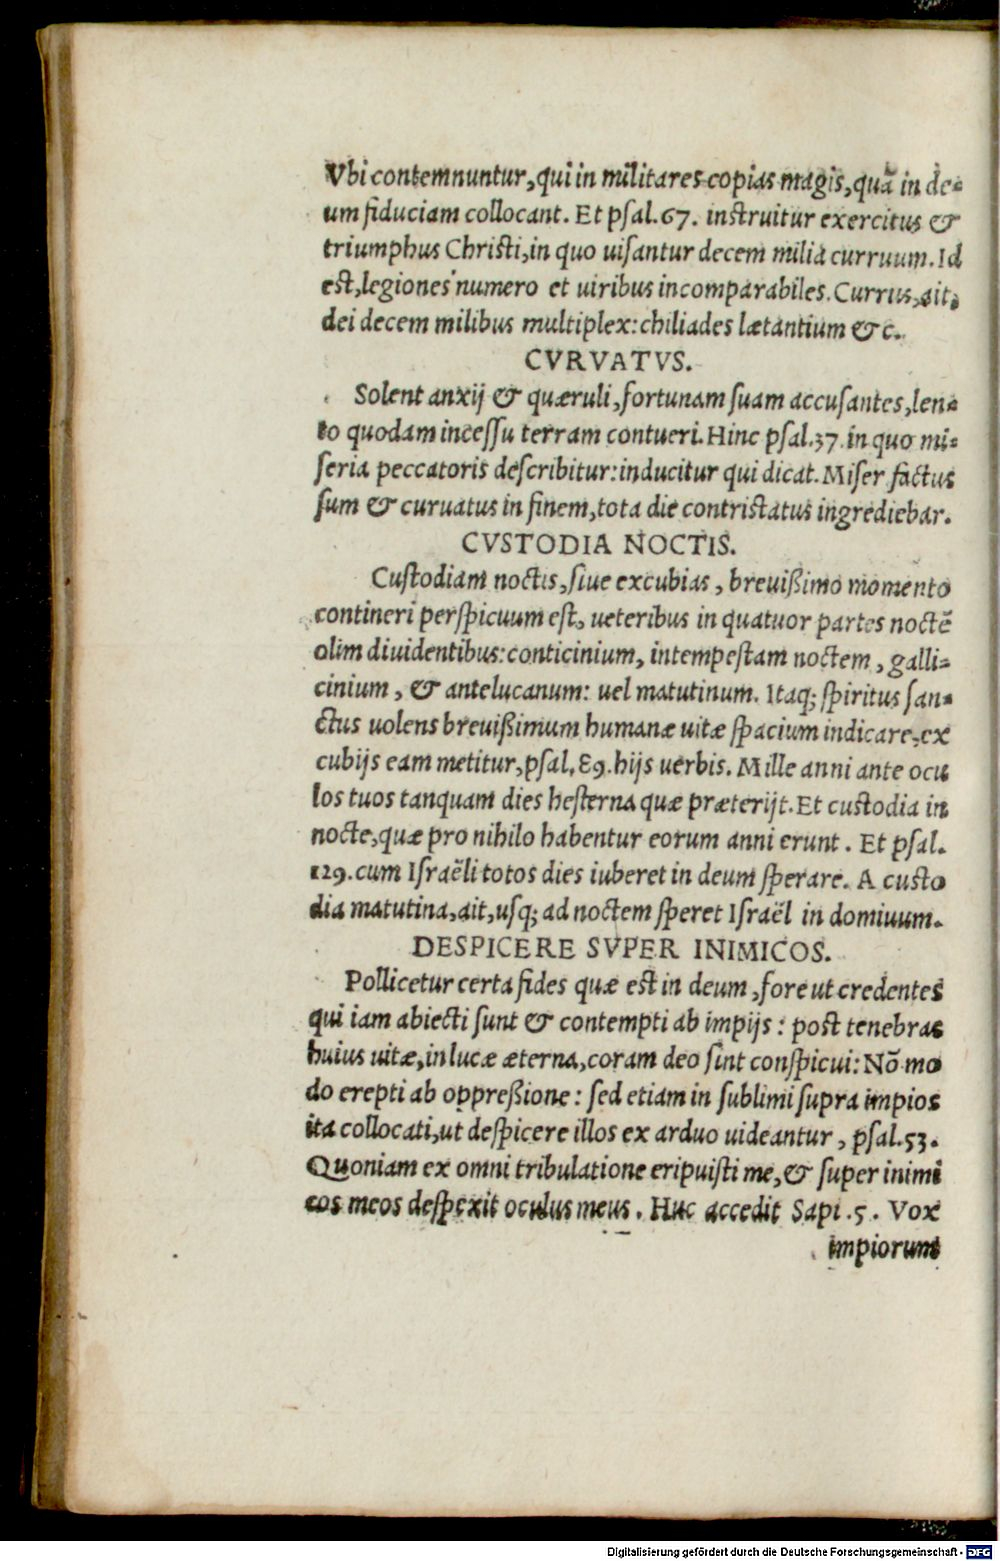 Vbi contemnuntur, qui in militares copias magis, quã in de-
um fiduciam collocant. Et psal. 67. instruitur exercitus &
triumphus Christi, in quo uisantur decem milia curruum. Id
est, legiones numero et uiribus incomparabiles. Currus, ait,
dei decem milibus multiplex: chiliades lætantium & c.
CVRVATVS.
Solent anxij & quæruli, fortunam suam accusantes, len-
to quodam incessu terram contueri. Hinc psal. 37. in quo mi-
seria peccatoris describitur: inducitur qui dicat. Miser factus
sum & curuatus in finem, tota die contristatus ingrediebar.
CVSTODIA NOCTIS.
Custodiam noctis, siue excubias, breuißimo momento
contineri perspicuum est, ueteribus in quatuor partes noctẽ
olim diuidentibus: conticinium, intempestam noctem, galli-
cinium, & antelucanum: uel matutinum. Itaq; spiritus san-
ctus uolens breuißimum humanæ uitæ spacium indicare, ex
cubijs eam metitur, psal. 89. hijs uerbis. Mille anni ante ocu
los tuos tanquam dies hesterna quæ præterijt. Et custodia in
nocte, quæ pro nihilo habentur eorum anni erunt. Et psal.
129. cum Israëli totos dies iuberet in deum sperare. A custo
dia matutina, ait, usq; ad noctem speret Israël in domiuum.
DESPICERE SVPER INIMICOS.
Pollicetur certa fides quæ est in deum, fore ut credentes
qui iam abiecti sunt & contempti ab impijs: post tenebras
huius uitæ, in lucæ æterna, coram deo sint conspicui: Nõ mo
do erepti ab oppreßione: sed etiam in sublimi supra impios
ita collocati, ut despicere illos ex arduo uideantur, psal. 53.
Quoniam ex omni tribulatione eripuisti me, & super inimi
cos meos despexit oculus meus. Huc accedit Sapi. 5. Vox
impiorum
Digitalisierung gefördert durch die Deutsche Forschungsgemeinschaft - DFG